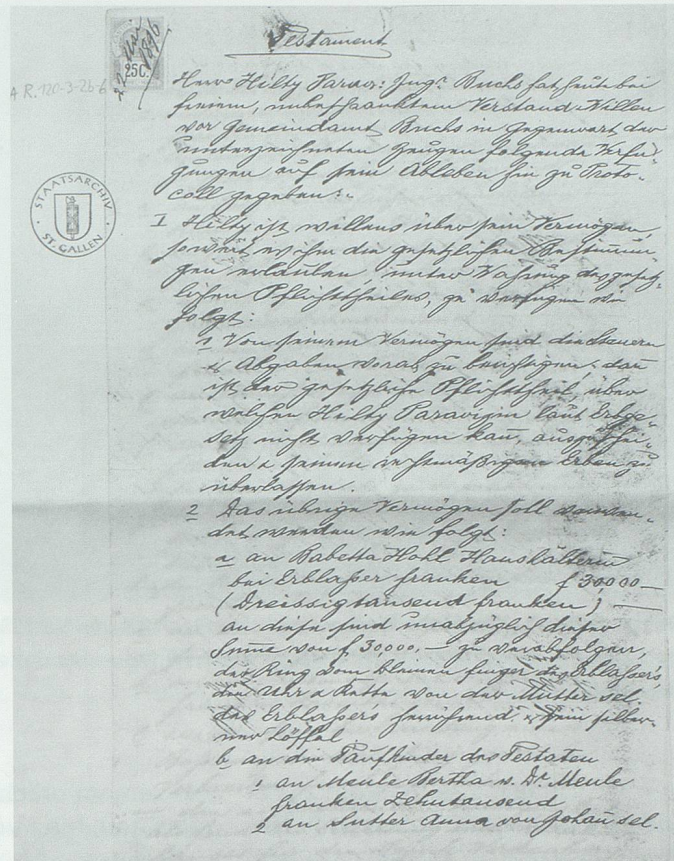 22 Mai
1896
25C.
Testament
A R.120-3-2b-6
STAATSARCHIV
ST. GALLEN
Herr Hilty Parav: Ingr Buchs hat heute bei
freiem, unbeschränktem Verstand & Willen
vor Gemeindamt Buchs in Gegenwart der
unterzeichneten Zeugen folgende Verfü-
gungen auf sein Ableben hin zu Proto-
coll gegeben:
I Hilty ist willens über sein Vermögen,
soweit es ihm die gesetzlichen Bestimmun-
gen erlauben, unter Wahrung des gesetz-
lichen Pflichttheiles, zu verfügen wie
folgt:
1 Von seinem Vermögen sind die Steuern
& Abgaben voraus zu berichtigen; dann
ist der gesetzliche Pflichttheil, über
welchen Hilty Paravizin laut Erbge-
setz nicht verfügen kann, auszuschei-
den & seinen rechtmäßigen Erben zu
überlassen.
2 Das übrige Vermögen soll verwen-
det werden wie folgt:
a an Babetta Hohl Haushälterin
bei Erblaßer franken f 30,000 —
(Dreissigtausend franken) —
an diese sind unabzüglich dieser
Summe von f 30000,— zu verabfolgen,
der Ring vom kleinen finger des Erblaßer's,
die Uhr & Kette von der Mutter sel.
des Erblaßer's herrührend & sein silber-
ner Löffel
b an die Taufkinder des Testaten
1 an Meule Bertha v. Dr. Meule
franken Zehntausend
2 an Sutter Anna von Johan sel.